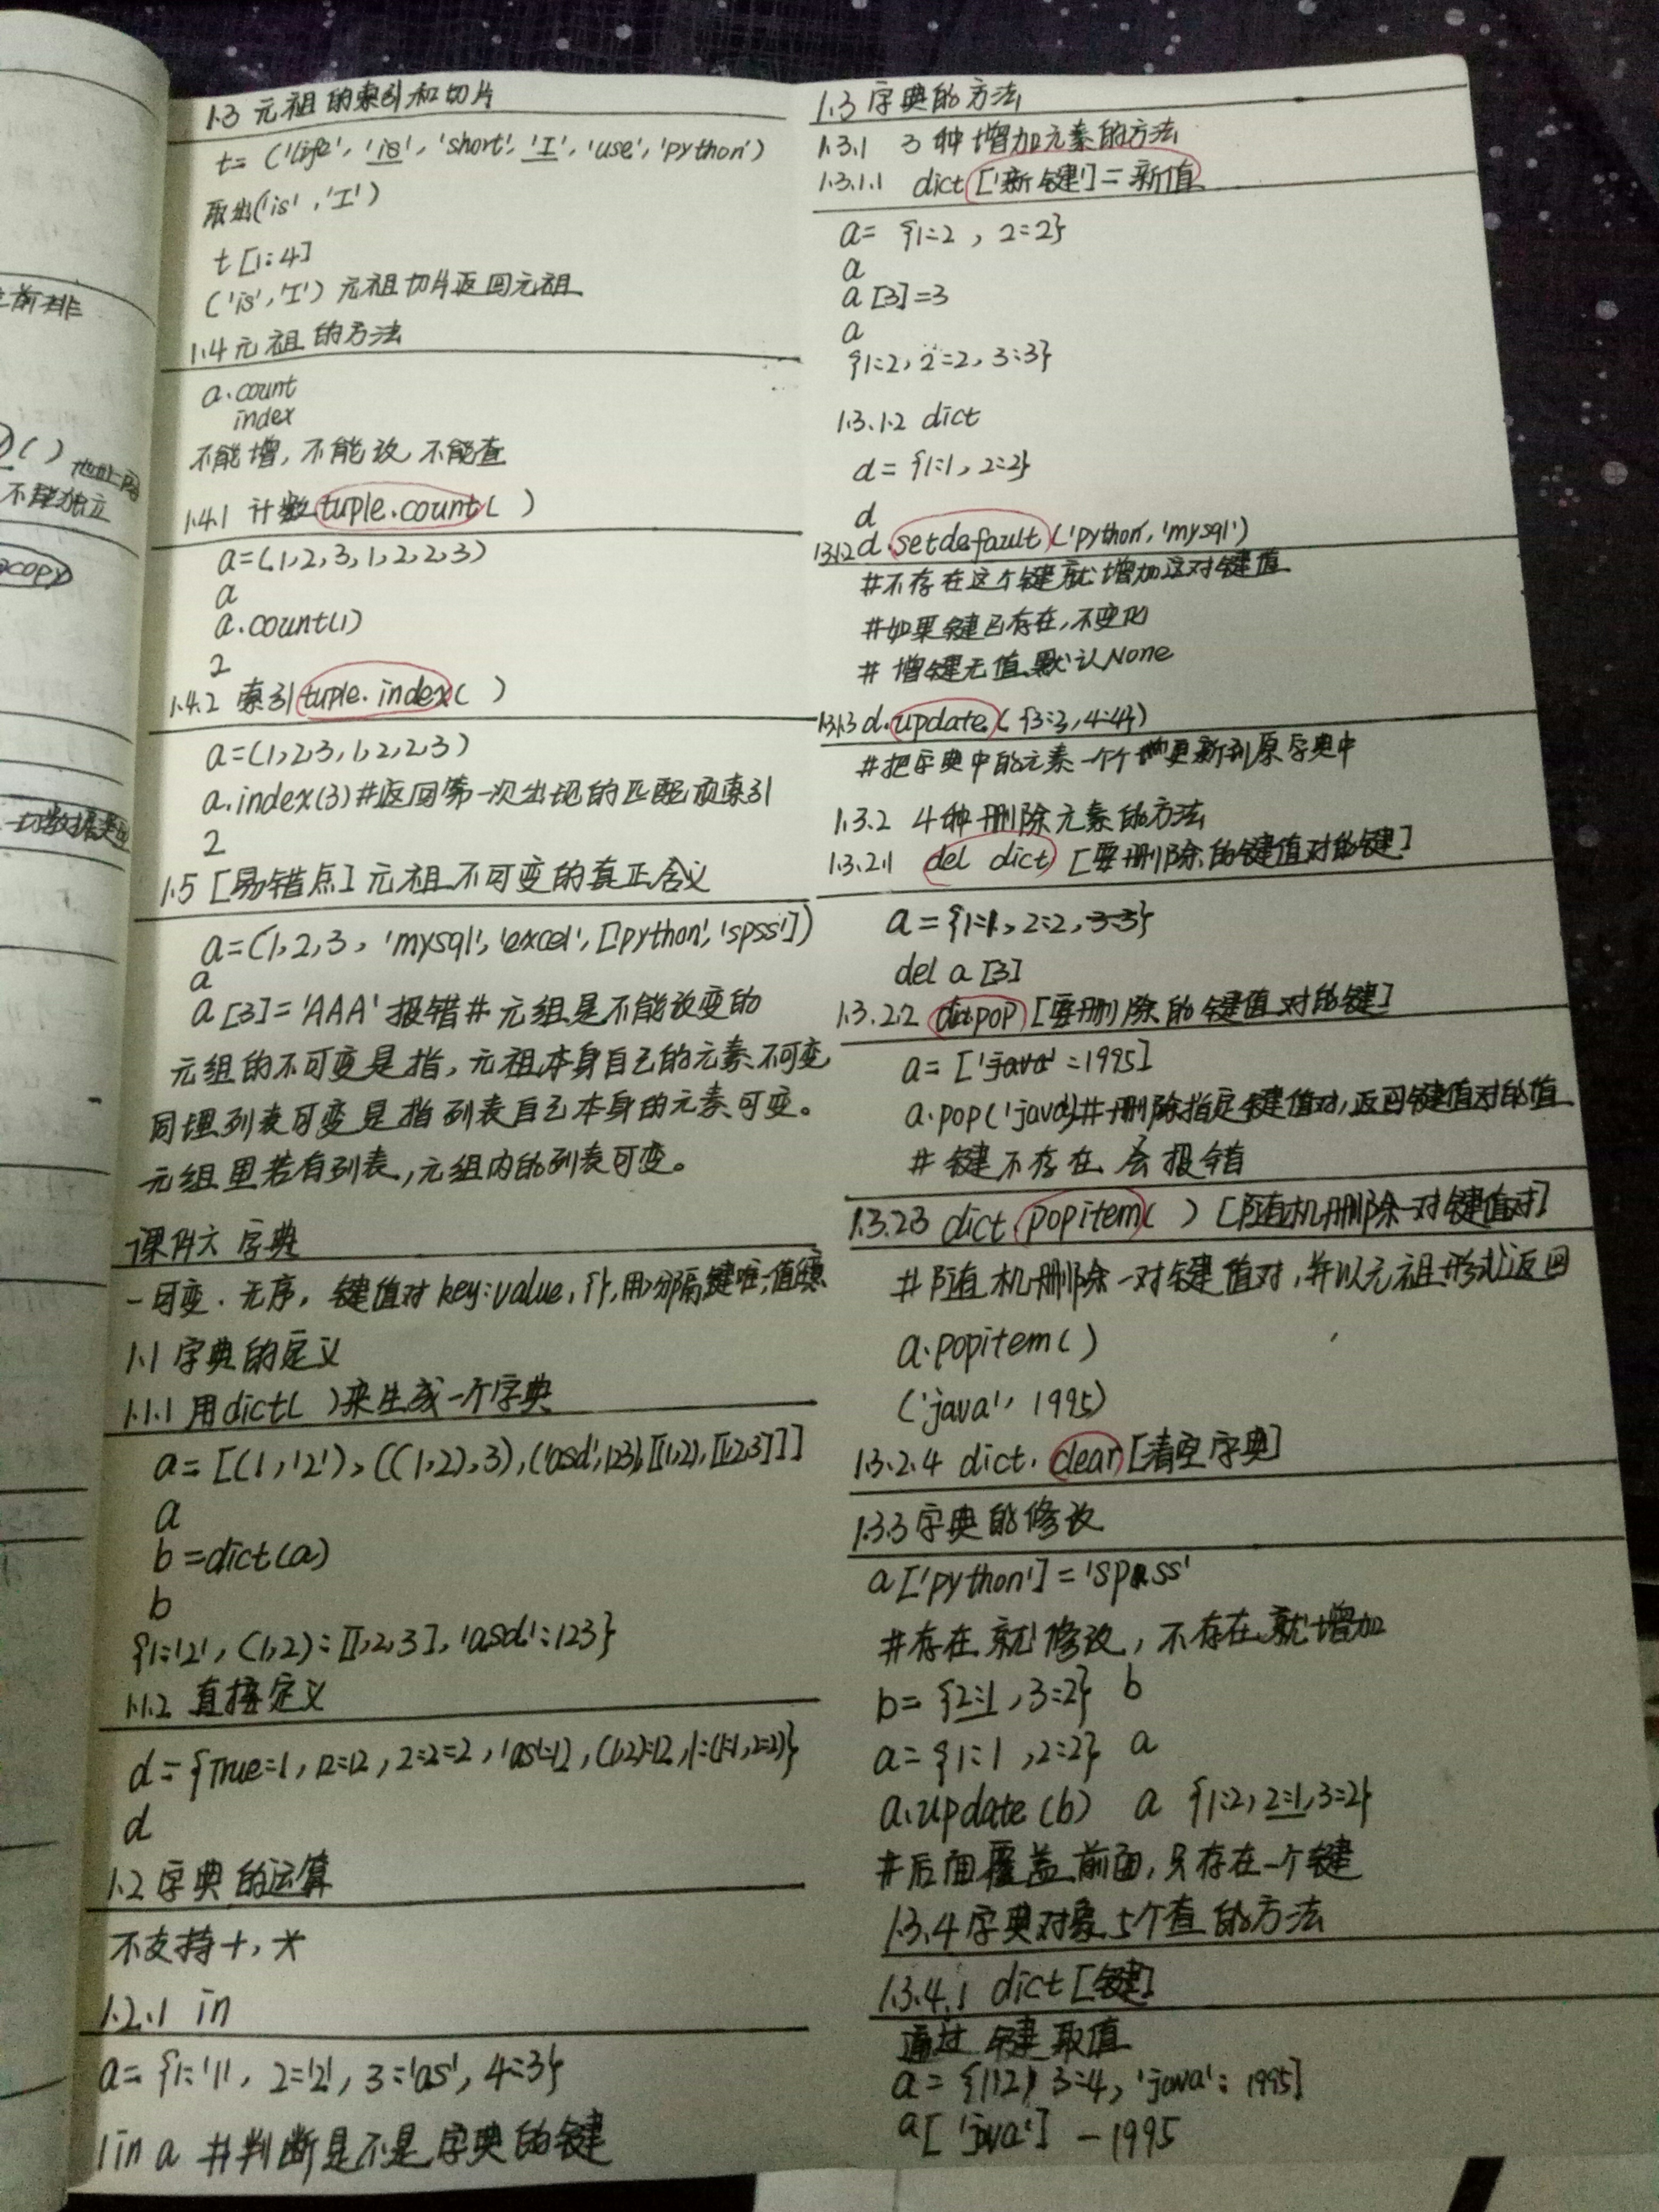 1.3 元祖的索引和切片
t= ('life', 'is', 'short', 'I', 'use', 'python')
取出('is', 'I')
t[1:4]
('is','I') 元祖切片返回元祖
1.4 元祖的方法
a.count
index
不能增, 不能改, 不能查
1.4.1 计数 tuple.count( )
a=(1,2,3,1,2,2,3)
a
a.count(1)
2
1.4.2 索引 tuple.index( )
a=(1,2,3,1,2,2,3)
a.index(3) #返回第一次出现的匹配项索引
2
1.5 [易错点] 元祖不可变的真正含义
a=(1,2,3, 'mysql', 'excel', ['python', 'spss'])
a
a[3]='AAA' 报错# 元组是不能改变的
元组的不可变是指, 元祖本身自己的元素不可变
同理列表可变是指列表自己本身的元素可变。
元组里若有列表,元组内的列表可变。
课件六 字典
一可变、无序, 键值对 key:value, { }, 用,分隔,键唯一,值
1.1 字典的定义
1.1.1 用dict( )来生成一个字典
a= [(1,'2'), ((1,2),3), ('asd',123), [(1,2), [1,2,3]]]
a
b=dict(a)
b
{1:'2', (1,2): [1,2,3], 'asd':123}
1.1.2 直接定义
d={True:1, 12:12, 2:2=2, 'as':12, (1,2):12, 1:(1:1,2:2)}
d
1.2 字典的运算
不支持+, *
1.2.1 in
a= {1:'1', 2:'2', 3:'as', 4:3}
1 in a #判断是不是字典的键
1.3 字典的方法
1.3.1 3种增加元素的方法
1.3.1.1 dict['新键']=新值
a= {1:2, 2:2}
a
a[3]=3
a
{1:2, 2:2, 3:3}
1.3.1.2 dict
d= {1:1, 2:2}
d
1.3.1.2 d.setdefault('python','mysql')
#不存在这个键就增加这对键值
#如果键已存在,不变化
# 增键无值,默认None
1.3.1.3 d.update({3:3,4:4})
#把字典中的元素一个个地更新到原字典中
1.3.2 4种删除元素的方法
1.3.2.1 del dict [要删除的键值对的键]
a={1:1, 2:2, 3:3}
del a[3]
1.3.2.2 dict.pop [要删除的键值对的键]
a= ['java':1995]
a.pop('java')#删除指定键值对,返回键值对的值
# 键不存在会报错
1.3.2.3 dict.popitem( ) [随机删除一对键值对]
#随机删除一对键值对,并以元祖形式返回
a.popitem( )
('java', 1995)
1.3.2.4 dict.clear [清空字典]
1.3.3 字典的修改
a['python']='spss'
#存在就修改, 不存在就增加
b= {2:1, 3:2} b
a= {1:1, 2:2} a
a.update(b) a {1:2, 2:1, 3:2}
#后面覆盖前面,只存在一个键
1.3.4 字典对象5个查的方法
1.3.4.1 dict[键]
通过键取值
a= {1:2, 3:4, 'java': 1995]
a['java'] - 1995
前排
不能独立
copy